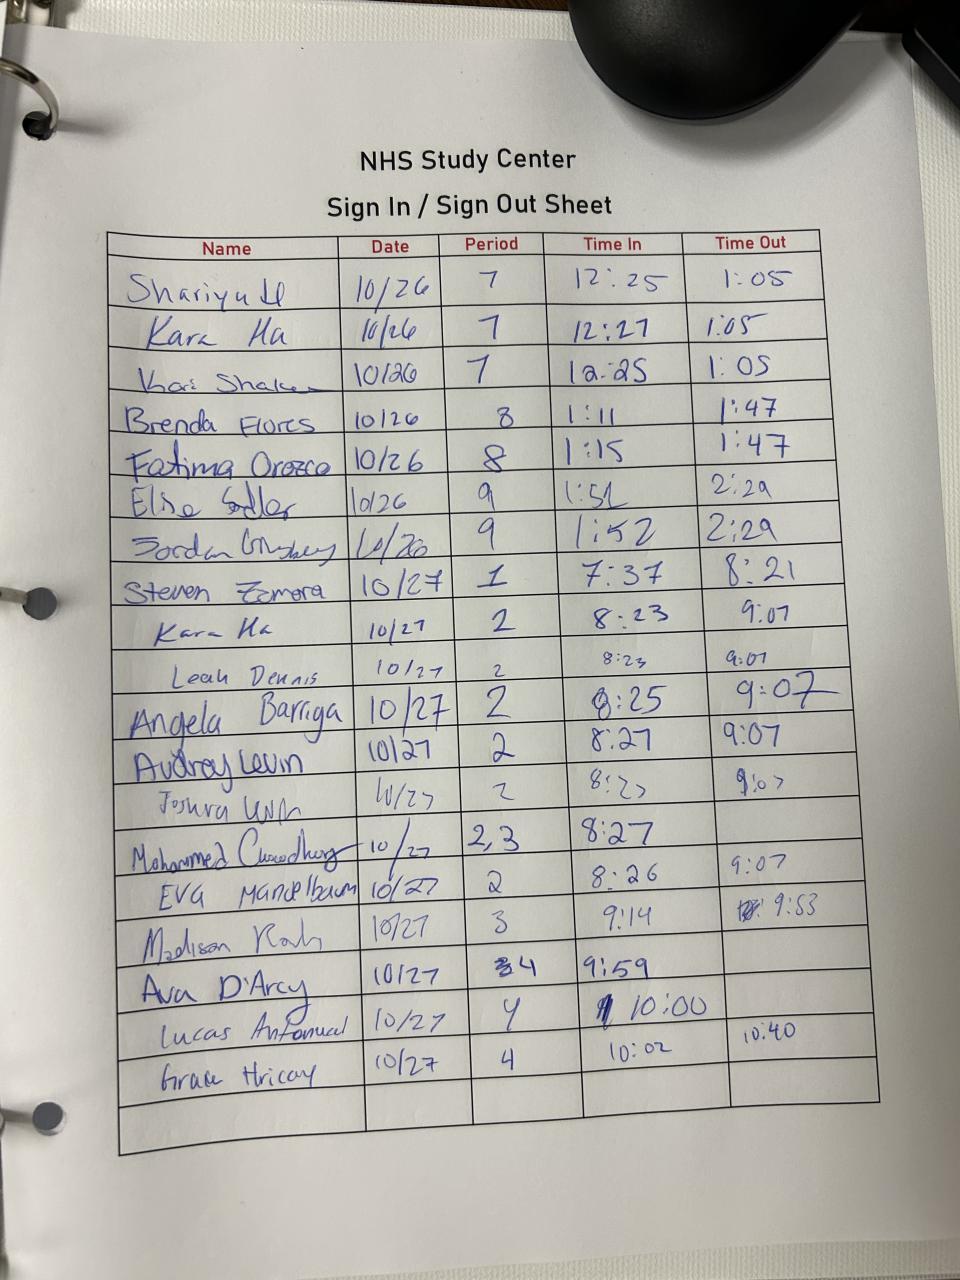 NHS Study Center
Sign In / Sign Out Sheet
Name Date Period Time In Time Out
10/26 7 12:25 1:05
Kara Ha 10/26 7 12:27 1:05
10/26 7 12:25 1:05
Brenda Flores 10/26 8 1:11 1:47
Fatima Orozco 10/26 8 1:15 1:47
Elise 10/26 9 1:51 2:29
Jordan 10/26 9 1:52 2:29
Steven Zamora 10/27 1 7:37 8:21
Kara Ha 10/27 2 8:23 9:07
Leah Dennis 10/27 2 8:23 9:07
Angela Barriga 10/27 2 8:25 9:07
Audrey Levin 10/27 2 8:27 9:07
Joshua 10/27 2 8:27 9:07
Mohammed Chowdhury 10/27 2,3 8:27
Eva Mandelbaum 10/27 2 8:26 9:07
Madison 10/27 3 9:14 9:53
Ava D'Arcy 10/27 4 9:59
Lucas 10/27 4 10:00
Grace Hricay 10/27 4 10:02 10:40